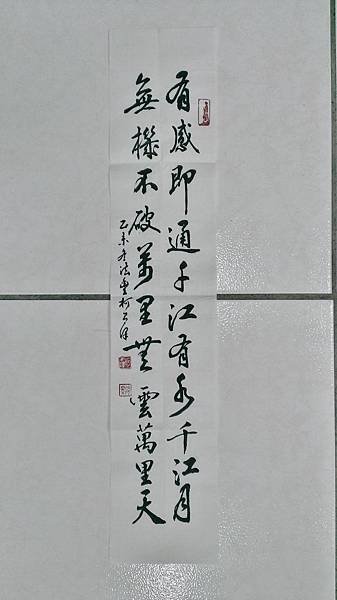 有感即通千江有水千江月
無機不破萬里無雲萬里天
乙未冬法柯